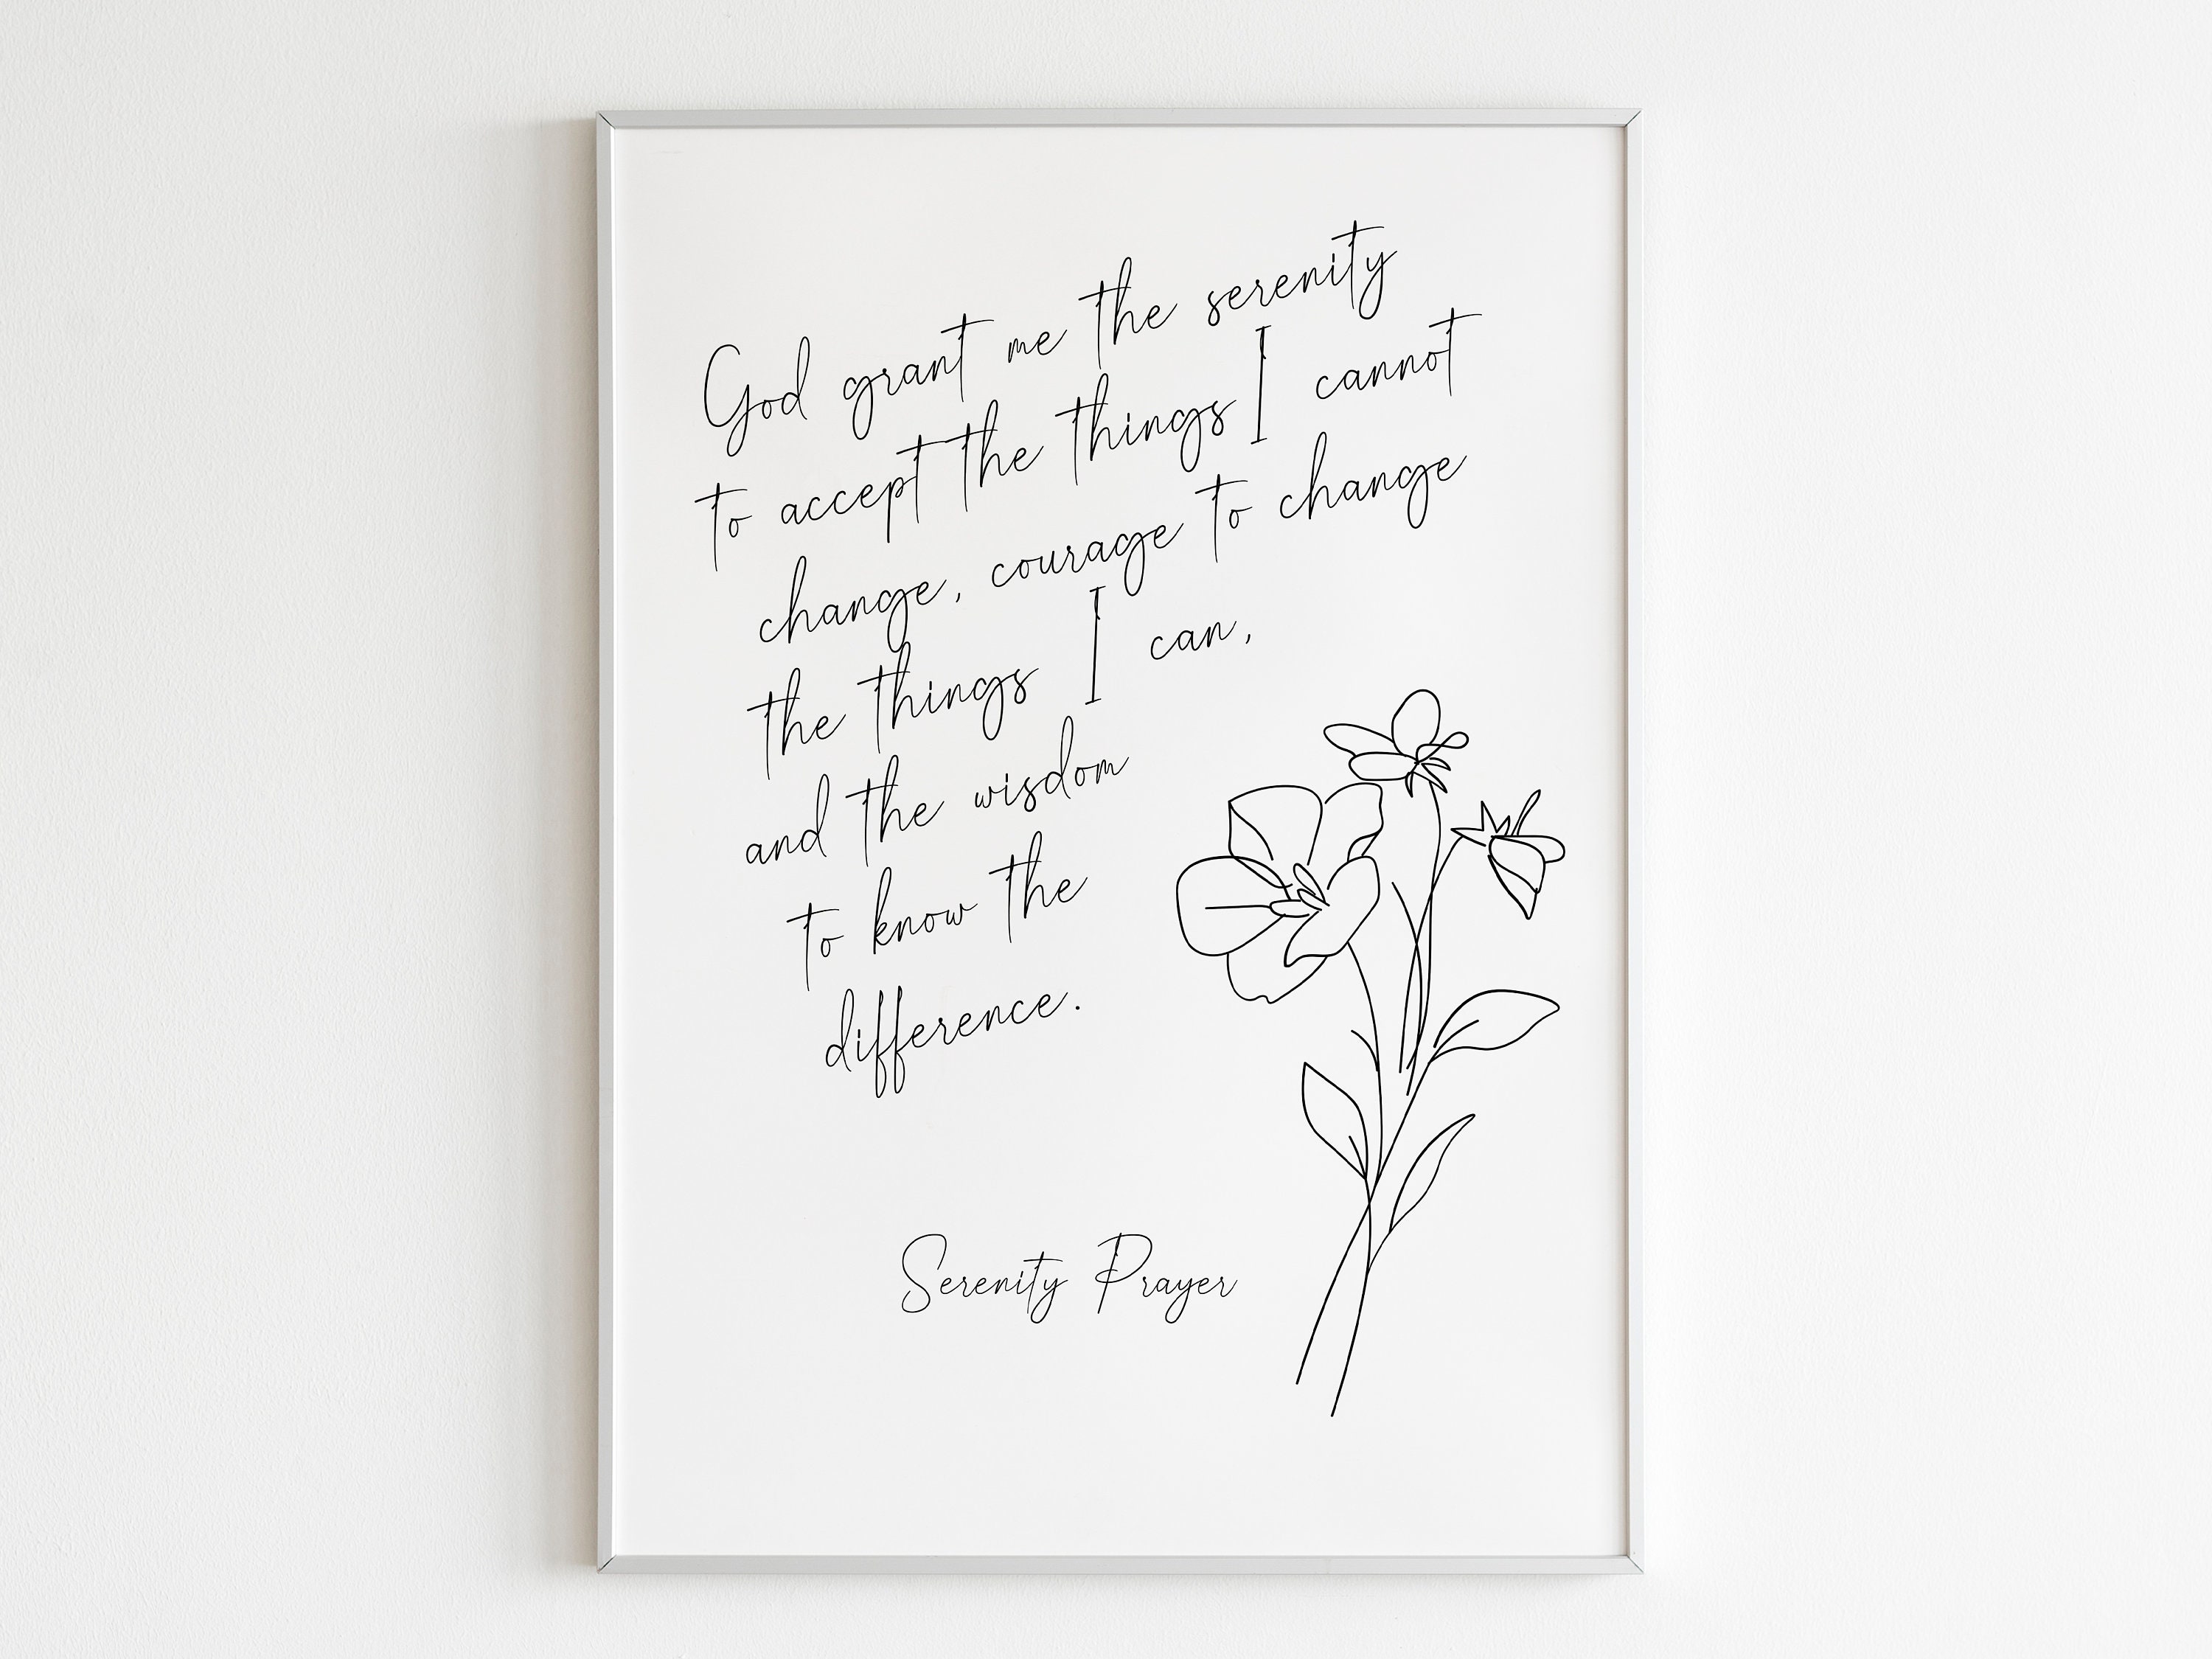 God grant me the serenity
to accept the things I cannot
change, courage to change
the things I can,
and the wisdom
to know the
difference.
Serenity Prayer